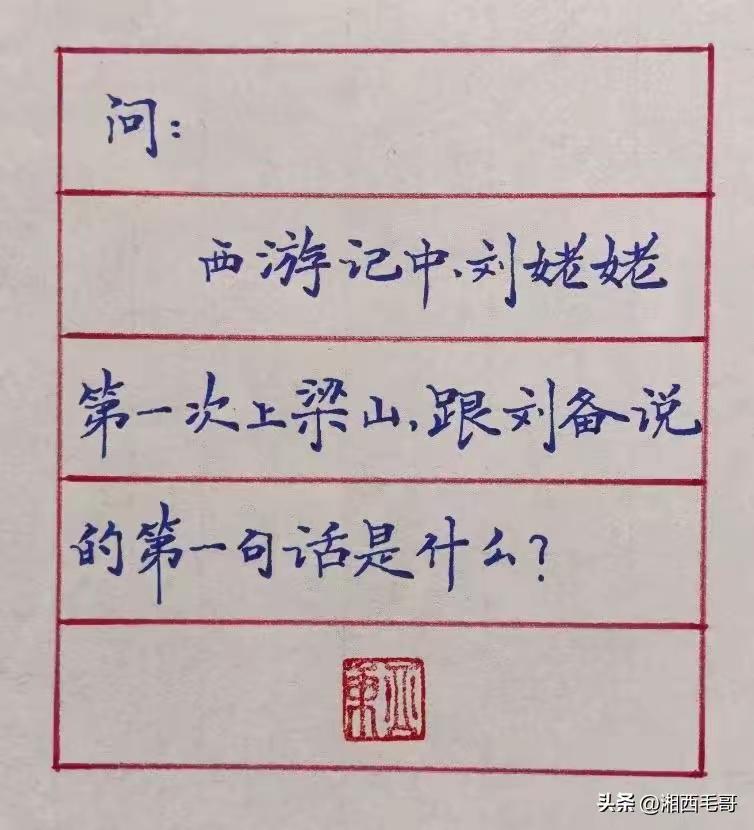 问：
西游记中、刘姥姥
第一次上梁山，跟刘备说
的第一句话是什么？
头条 @湘西毛哥